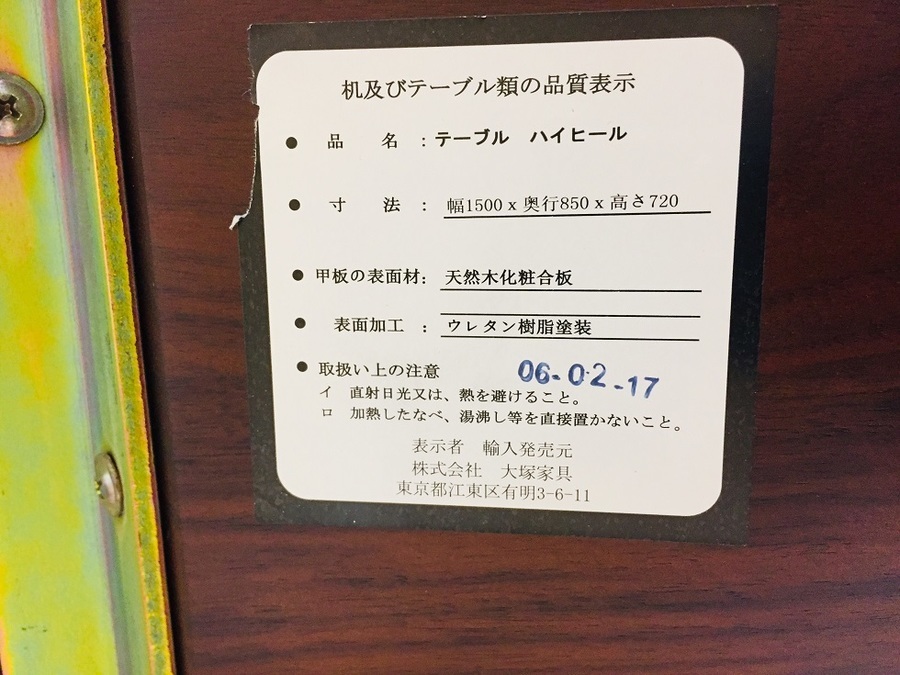 机及びテーブル類の品質表示
● 品 名 : テーブル ハイヒール
● 寸 法 : 幅1500 x 奥行850 x 高さ720
● 甲板の表面材: 天然木化粧合板
● 表面加工 : ウレタン樹脂塗装
● 取扱い上の注意 06-02-17
イ 直射日光又は、熱を避けること。
ロ 加熱したなべ、湯沸し等を直接置かないこと。
表示者 輸入発売元
株式会社 大塚家具
東京都江東区有明3-6-11